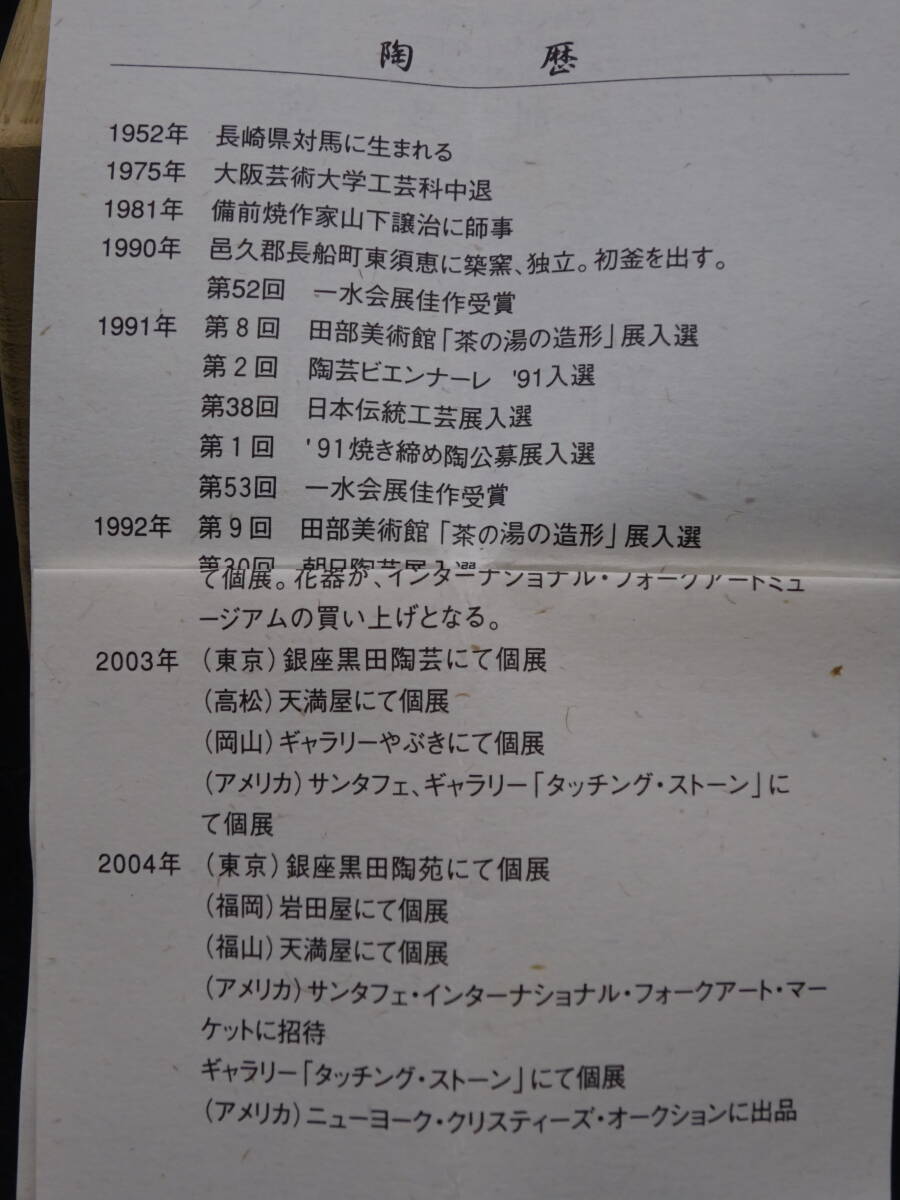 陶歴
1952年 長崎県対馬に生まれる
1975年 大阪芸術大学工芸科中退
1981年 備前焼作家山下譲治に師事
1990年 邑久郡長船町東須恵に築窯、独立。初釜を出す。
第52回 一水会展佳作受賞
1991年 第8回 田部美術館「茶の湯の造形」展入選
第2回 陶芸ビエンナーレ '91入選
第38回 日本伝統工芸展入選
第1回 '91焼き締め陶公募展入選
第53回 一水会展佳作受賞
1992年 第9回 田部美術館「茶の湯の造形」展入選
第30回 朝日陶芸展入選
て個展。花器が、インターナショナル・フォークアートミュ
ージアムの買い上げとなる。
2003年 (東京)銀座黒田陶芸にて個展
(高松)天満屋にて個展
(岡山)ギャラリーやぶきにて個展
(アメリカ)サンタフェ、ギャラリー「タッチング・ストーン」に
て個展
2004年 (東京)銀座黒田陶苑にて個展
(福岡)岩田屋にて個展
(福山)天満屋にて個展
(アメリカ)サンタフェ・インターナショナル・フォークアート・マー
ケットに招待
ギャラリー「タッチング・ストーン」にて個展
(アメリカ)ニューヨーク・クリスティーズ・オークションに出品